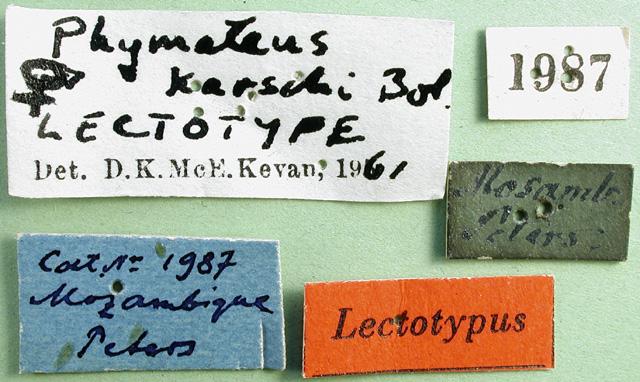 Phymateus
♀ karschi Bol.
LECTOTYPE
Det. D.K. McE. Kevan, 1961
1987
Mosamb.
Peters
Cat. Nr 1987
Mozambique
Peters
Lectotypus